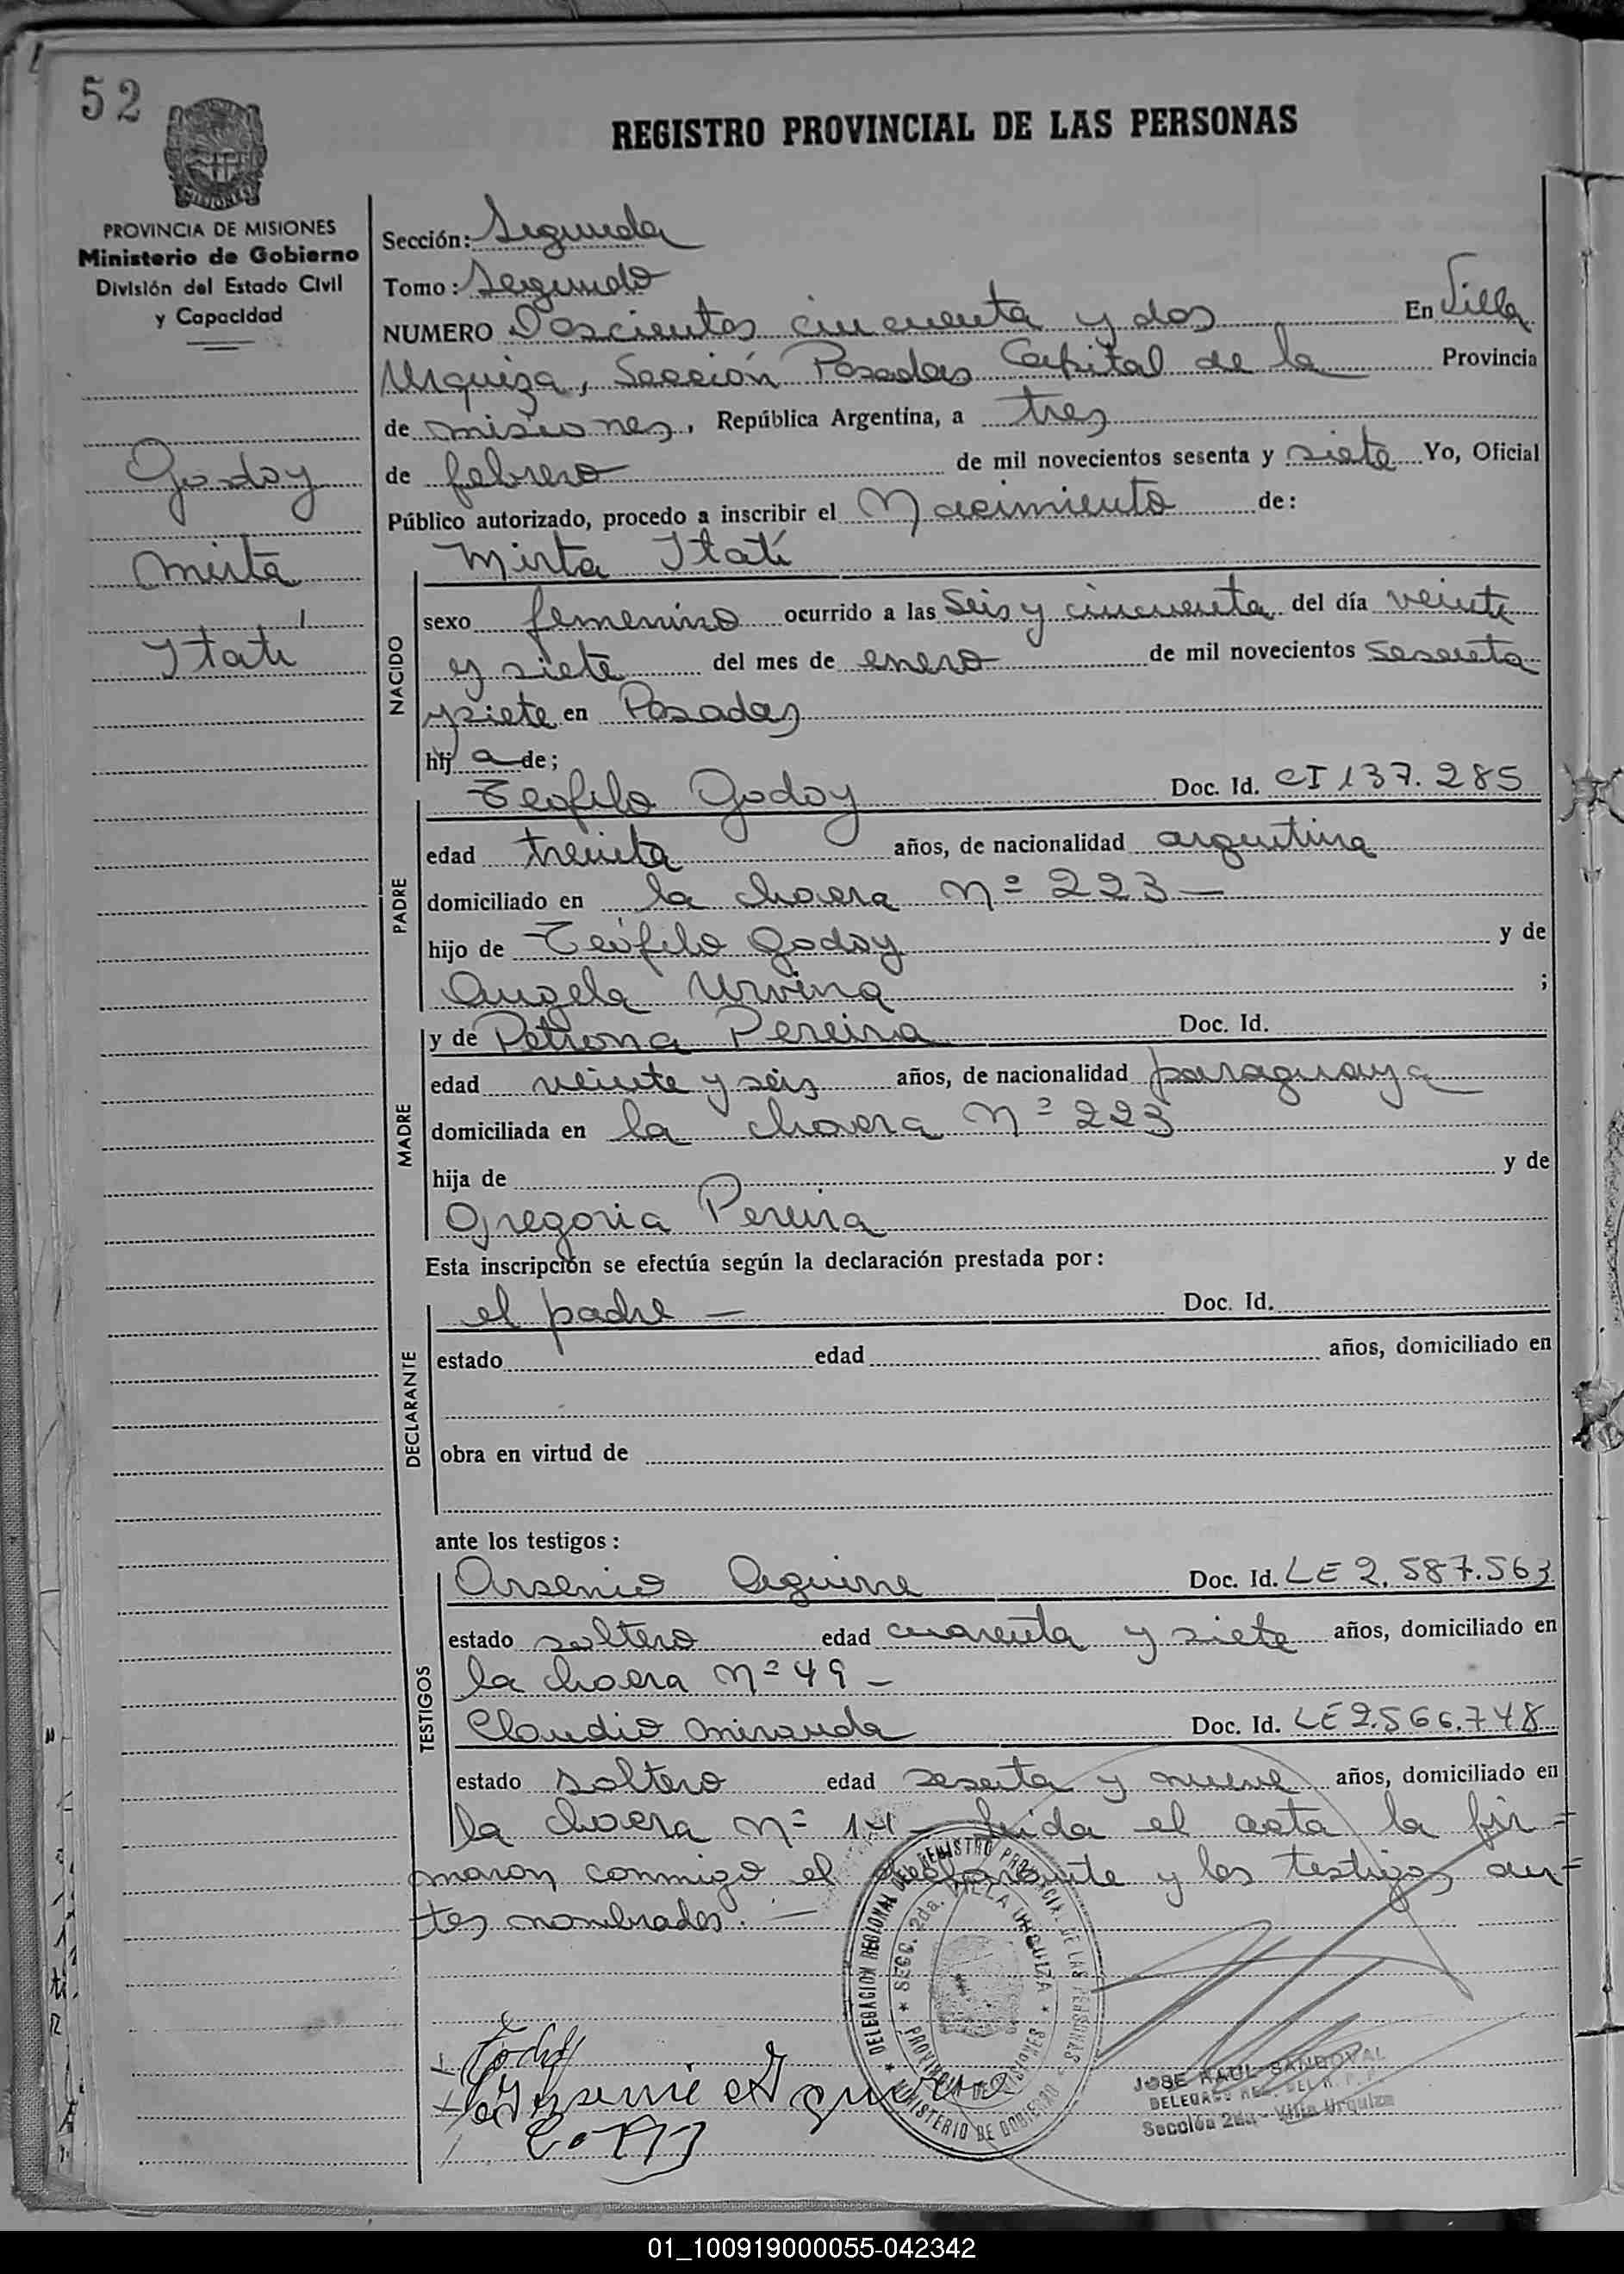 52
REGISTRO PROVINCIAL DE LAS PERSONAS
MISIONES
PROVINCIA DE MISIONES
Ministerio de Gobierno
División del Estado Civil
y Capacidad
Godoy
Mirta
Itatí
Sección: Segunda
Tomo: Segundo
NUMERO Doscientos cincuenta y dos En Villa
Urquiza, Sección Posadas Capital de la Provincia
de misiones, República Argentina, a tres
de febrero de mil novecientos sesenta y siete Yo, Oficial
Público autorizado, procedo a inscribir el Nacimiento de:
NACIDO
Mirta Itatí
sexo femenino ocurrido a las Seis y cincuenta del día veinte
y siete del mes de enero de mil novecientos sesenta
y siete en Posadas
hij a de;
PADRE
Teofilo Godoy Doc. Id. CI 137.285
edad treinta años, de nacionalidad argentina
domiciliado en la chacra Nº 223 —
hijo de Teófilo Godoy y de
Angela Urvina ;
MADRE
y de Petrona Pereira Doc. Id.
edad veinte y seis años, de nacionalidad paraguaya
domiciliada en la chacra Nº 223
hija de y de
Gregoria Pereira
Esta inscripción se efectúa según la declaración prestada por:
DECLARANTE
el padre — Doc. Id.
estado edad años, domiciliado en
obra en virtud de
ante los testigos:
TESTIGOS
Arsenio Aguirre Doc. Id. LE 2.587.563
estado soltero edad cuarenta y siete años, domiciliado en
la chacra Nº 49 —
Claudio Miranda Doc. Id. LE 2.566.748
estado soltero edad sesenta y nueve años, domiciliado en
la chacra Nº 14 — Leida el acta la fir=
maron conmigo el declarante y los testigos an=
tes nombrados. —
DELEGACION REGIONAL DEL REGISTRO PROVINCIAL DE LAS PERSONAS
SECC. 2da. VILLA URQUIZA
PROVINCIA DE MISIONES
MINISTERIO DE GOBIERNO
Arsenio Aguirre
JOSE RAUL SANDOVAL
DELEGADO REG. DEL R. P. P.
Sección 2da - Villa Urquiza
01_100919000055-042342